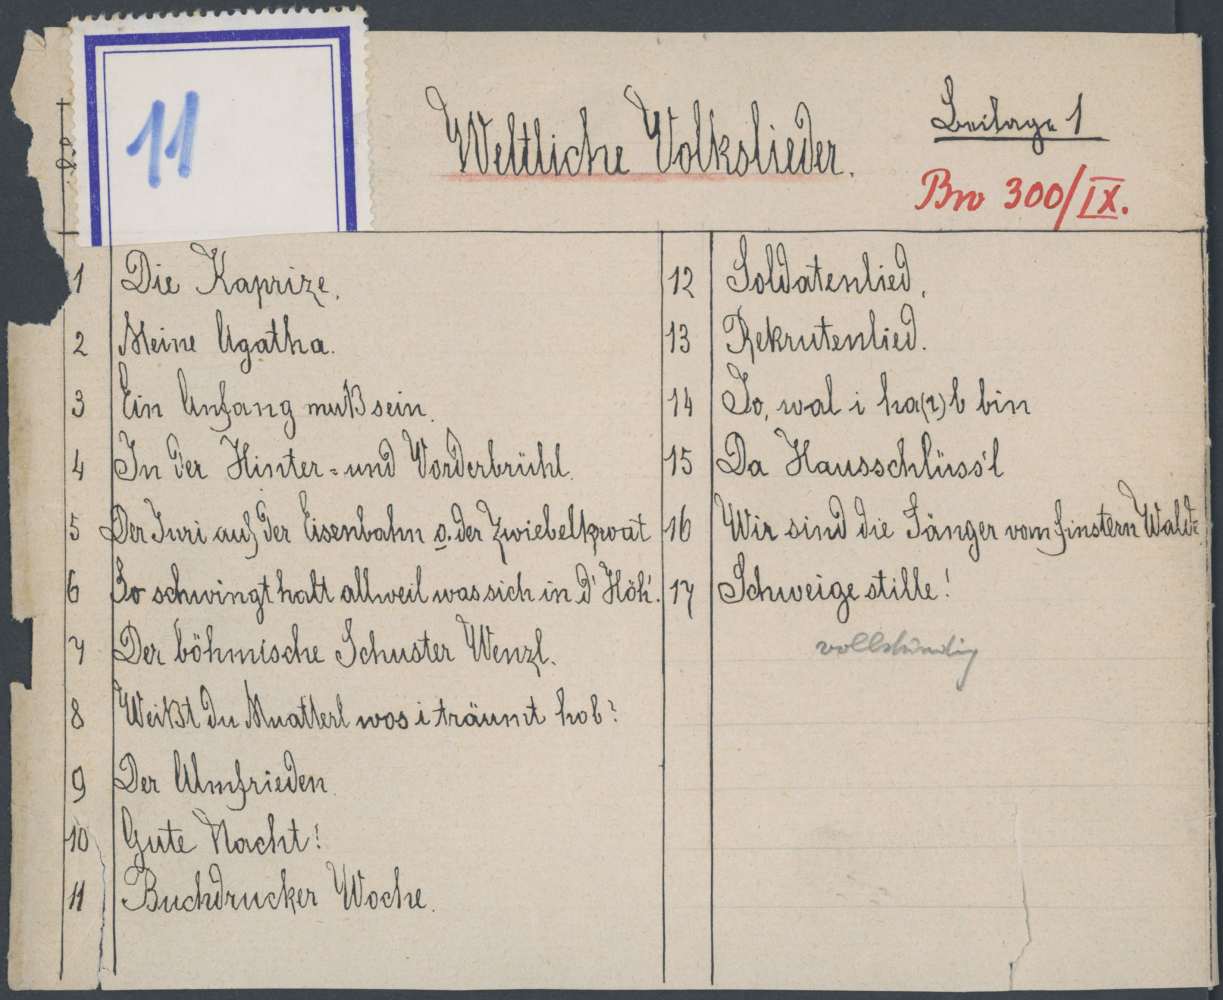 11
Weltliche Volkslieder.
Beilage 1
Bro 300/IX.
1 Die Kaprize.
2 Meine Agatha.
3 Ein Anfang muß sein.
4 In der Hinter- und Vorderbrühl.
5 Der Juri auf der Eisenbahn o. der Zwiebelkrwat
6 So schwingt halt allweil was sich in d' Höh'.
7 Der böhmische Schuster Wenzl.
8 Weißt du Muatterl wos i träumt hob?
9 Der Almfrieden
10 Gute Nacht!
11 Buchdrucker Woche.
12 Soldatenlied.
13 Rekrutenlied.
14 Jo, wal i ha(r)b bin
15 Da Hausschlüss'l
16 Wir sind die Sänger vom finstern Walde
17 Schweige stille!
vollständig